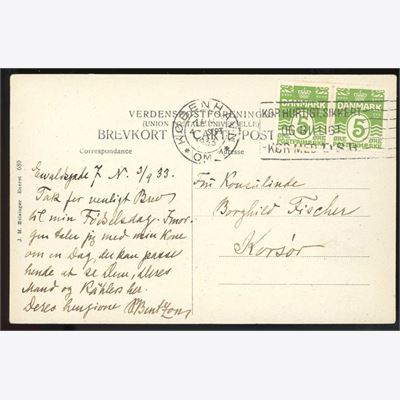 VERDENSPOSTFORENINGEN
(UNION POSTALE UNIVERSELLE)
BREVKORT CARTE POSTALE
Correspondance
Adresse
KØBENHAVN
OMK.
DANMARK
5
ØRE
DANMARK
5
ØRE
KØR HURTIGT, SIKKERT
OG BILLIGT
KØR MED
J. M. Eneret 680
Ewaldsgade 7 N. 3/9 33.
Tak for venligt Brev
til min Fødselsdag. Imor-
gen taler jeg med min Kone
om en Dag, der kan passe
hende at se Dem, Deres
Mand og her.
Deres hengivne
Fru Konsulinde
Borghild Fischer
Korsør